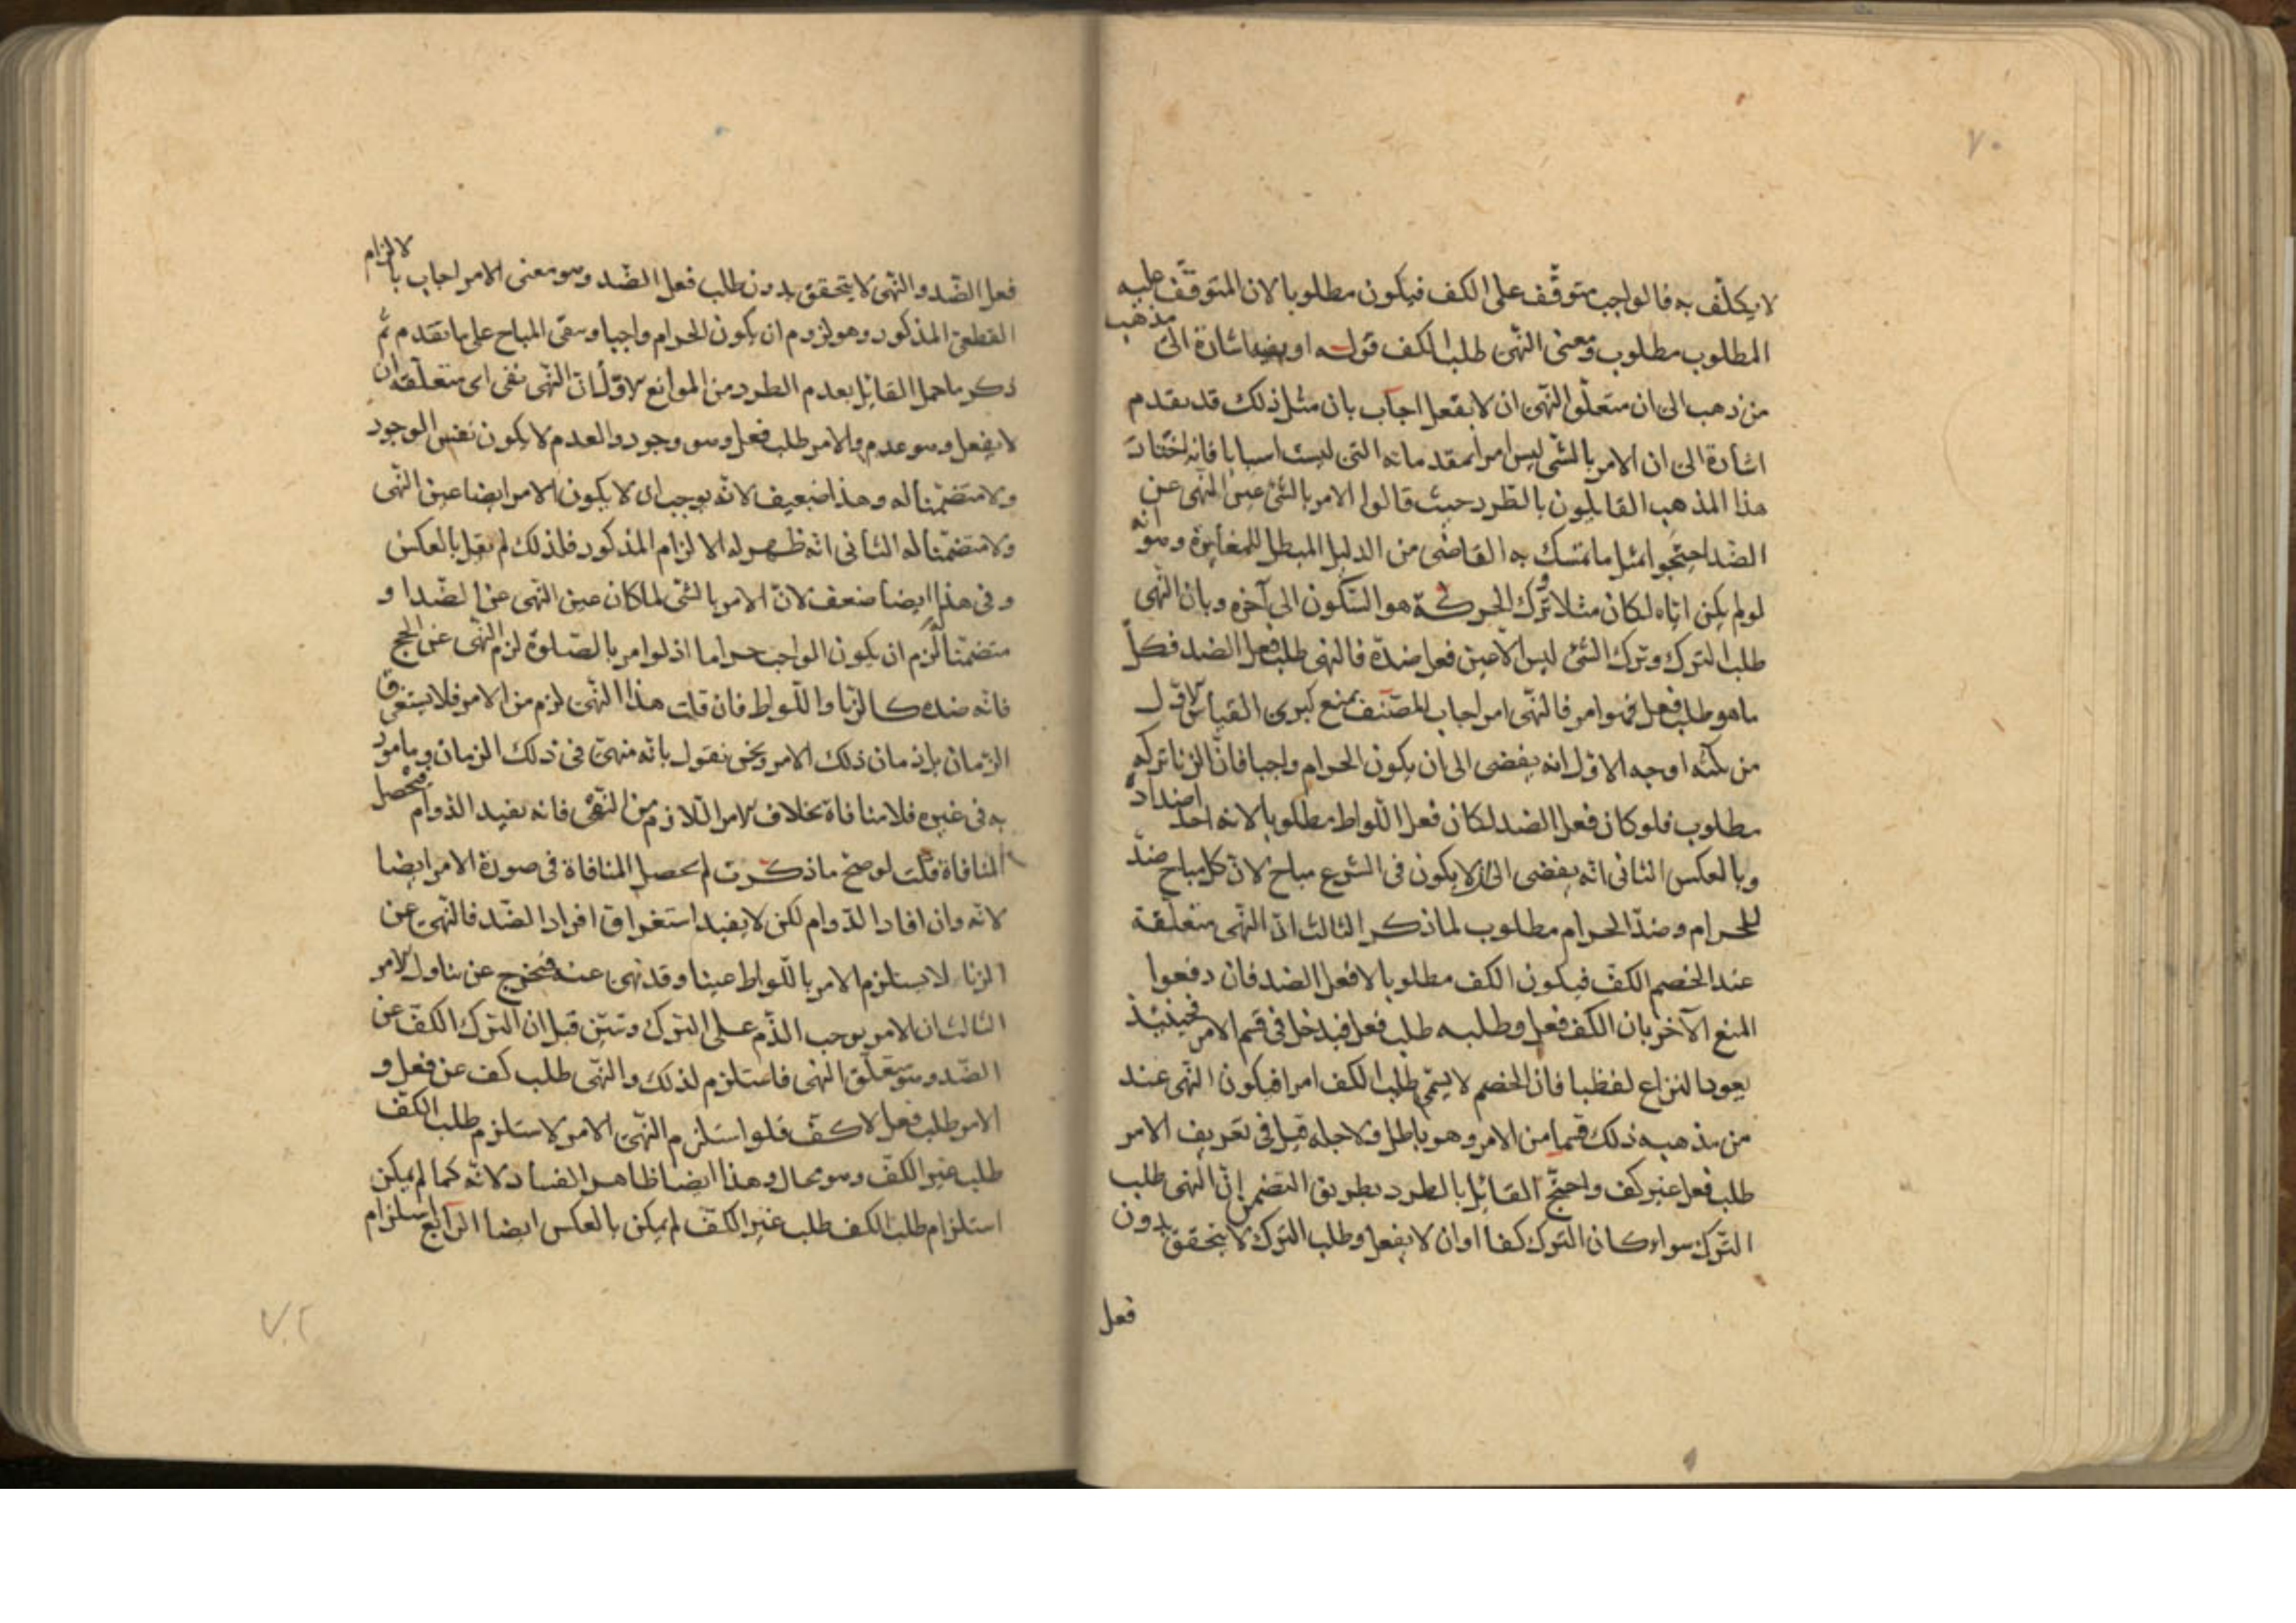 ٧٠
لا يكلّف به فالواجب متوقّف على الكف فيكون مطلوبا لان المتوقّف عليه
المطلوب مطلوب ومعنى النّهى طلب الكف قوله اشارة الى مذهب
من ذهب الى ان متعلّق النّهى ان لا يفعل اجاب بان مثل ذلك قد تقدم
اشارة الى ان الامر بالشى ليس امرا بمقدماته التى ليست اسبابا فانه اختار
هذا المذهب القايلون بالطّرد حيث قالوا الامر بالشئ عين النّهى عن
الضّد احتجّوا بمثل ما تمسّك به القاضى من الدليل المبطل للمغايرة وهو انه
لو لم يكن ايّاه لكان مثلا ترك الحركة هو السّكون الى آخره وبان النّهى
طلب الترك وترك الشئ ليس الا عين فعل ضدّه فالنهى طلب فعل الضد فكلّ
ما هو طلب فعل فهو امر فالنّهى امر اجاب المصنّف بمنع كبرى القياس الاوّل
من ثلثه اوجه الاوّل انه يفضى الى ان يكون الحرام واجبا فانّ الزنا تركه
مطلوب فلو كان فعل الضد لكان فعل اللّواط مطلوبا لانه احد اضداده
وبالعكس الثانى انّه يفضى الى ان لا يكون فى الشرع مباح لانّ كل مباح ضدّ
للحرام وضدّ الحرام مطلوب لما ذكر الثالث انّ النّهى متعلّقة
عند الخصم الكفّ فيكون الكف مطلوبا لا فعل الضد فان دفعوا
المنع الآخر بان الكف فعل وطلبه طلب فعل فيدخل فى قسم الامر فحينئذ
يعود النزاع لفظيا فان الخصم لا يسمّى طلب الكف امرا فيكون النّهى عند
من مذهبه ذلك قسما من الامر وهو باطل ولاجله قيل فى تعريف الامر
طلب فعل غير كف واحتجّ القائل بالطرد بطريق التضمن انّ النّهى طلب
التّرك سواء كان الترك كفا او ان لا يفعل وطلب الترك لا يتحقق بدون
فعل
فعل الضّد والنّهى لا يتحقق بدون طلب فعل الضّد وهو معنى الامر اجاب بالالزام
القطعىّ المذكور وهو لزوم ان يكون الحرام واجبا ونفى المباح على ما تقدم ثمّ
ذكر ما حمل القائل بعدم الطرد من الموانع الاوّل انّ النّهى نفى اى متعلّقه ان
لا يفعل وهو عدم والامر طلب فعل وهو وجود والعدم لا يكون نفس الوجود
ولا متضمّنا له وهذا ضعيف لانّه يوجب ان لا يكون الامر ايضا عين النّهى
ولا متضمّنا له الثانى انّه ظهر له الالزام المذكور فلذلك لم يقل بالعكس
وفى هذا ايضا ضعف لانّ الامر بالشى لما كان عين النّهى عن الضّد او
متضمّنا لزم ان يكون الواجب حراما اذ لو امر بالصّلوة لزم النّهى عن الحج
فانّه ضده كالزّنا واللّواط فان قلت هذا النّهى لزم من الامر فلا يستغرق
الزّمان بل زمان ذلك الامر ونحن نقول بانّه منهىّ فى ذلك الزمان ومأمور
به فى غيره فلا منافاة بخلاف الامر اللازم من النّهى فانه يفيد الدّوام فيحصل
المنافاة قلت لو صحّ ما ذكرت لم يحصل المنافاة فى صورة الامر ايضا
لانّه وان افاد الدّوام لكن لا يفيد استغراق افراد الضّد فالنّهى عن
الزنا لا يستلزم الامر باللّواط عينا وقد نهى عنه فيخرج عن تناول الامر
الثالث ان الامر يوجب الذّم على الترك وتبيّن قبل ان الترك الكفّ عن
الضّد وهو متعلّق النهى فاستلزم لذلك والنّهى طلب كف عن فعل و
الامر طلب فعل لا كفّ فلو استلزم النّهى الامر لاستلزم طلب الكفّ
طلب غير الكفّ وهو محال وهذا ايضا ظاهر الفساد لانّه كما لم يمكن
استلزام طلب الكف طلب غير الكفّ لم يمكن بالعكس ايضا الرابع استلزام